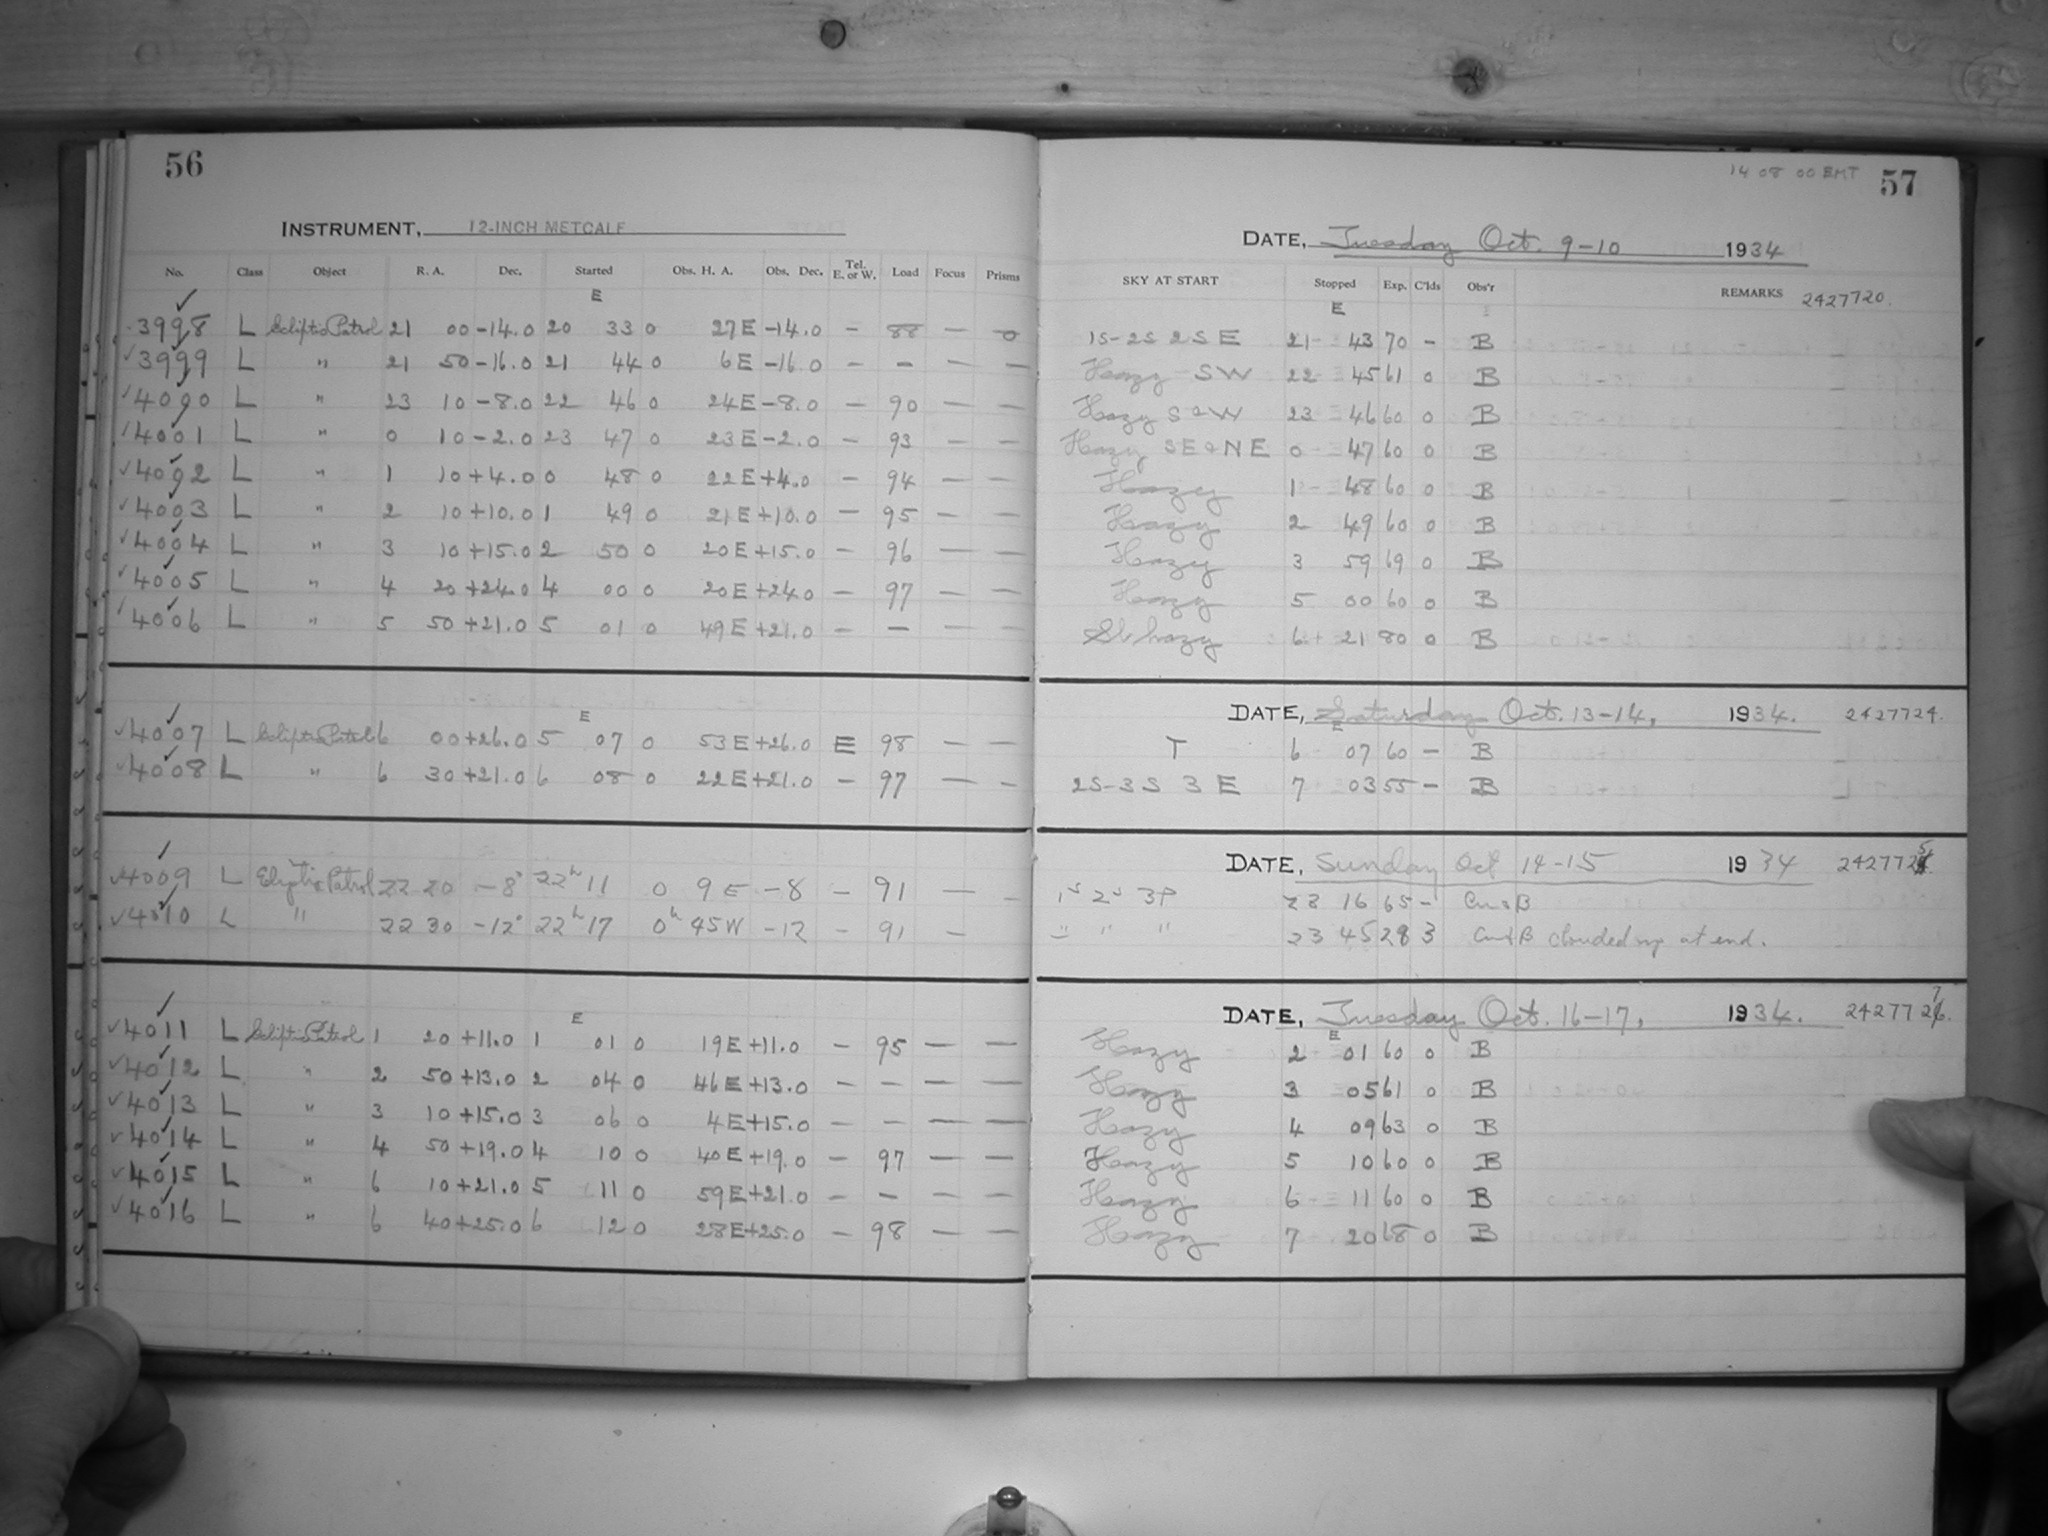 56
INSTRUMENT, 12-INCH METCALF
No. Class Object R. A. Dec. Started Obs. H. A. Obs. Dec. Tel. E. or W. Load Focus Prisms
E
3998 L Ecliptic Patrol 21 00 -14.0 20 33 0 27E -14.0 — 88 — 0
3999 L " 21 50 -16.0 21 44 0 6E -16.0 — — — —
4000 L " 23 10 -8.0 22 46 0 24E -8.0 — 90 — —
4001 L " 0 10 -2.0 23 47 0 23E -2.0 — 93 — —
4002 L " 1 10 +4.0 0 48 0 22E +4.0 — 94 — —
4003 L " 2 10 +10.0 1 49 0 21E +10.0 — 95 — —
4004 L " 3 10 +15.0 2 50 0 20E +15.0 — 96 — —
4005 L " 4 20 +24.0 4 00 0 20E +24.0 — 97 — —
4006 L " 5 50 +21.0 5 01 0 49E +21.0 — — — —
E
4007 L Ecliptic Patrol 6 00 +26.0 5 07 0 53E +26.0 E 98 — —
4008 L " 6 30 +21.0 6 08 0 22E +21.0 — 97 — —
4009 L Eliptic Patrol 22 20 -8° 22h 11 0 9E -8 — 91 — —
4010 L " 22 30 -12° 22h 17 0h 45W -12 — 91 —
E
4011 L Ecliptic Patrol 1 20 +11.0 1 01 0 19E +11.0 — 95 — —
4012 L " 2 50 +13.0 2 04 0 46E +13.0 — — — —
4013 L " 3 10 +15.0 3 06 0 4E +15.0 — — — —
4014 L " 4 50 +19.0 4 10 0 40E +19.0 — 97 — —
4015 L " 6 10 +21.0 5 11 0 59E +21.0 — — — —
4016 L " 6 40 +25.0 6 12 0 28E +25.0 — 98 — —
14 08 00 EMT 57
DATE, Tuesday Oct. 9-10 1934
SKY AT START Stopped Exp. C'lds Obs'r REMARKS 2427720.
E
1S-2S 2S E 21 43 70 — B
Hazy SW 22 45 61 0 B
Hazy S&W 23 46 60 0 B
Hazy SE&NE 0 47 60 0 B
Hazey 1 48 60 0 B
Hazy 2 49 60 0 B
Hazy 3 59 69 0 B
Hazy 5 00 60 0 B
Sl. hazy 6 21 80 0 B
DATE, Saturday Oct. 13-14, 1934. 2427724.
E
T 6 07 60 — B
2S-3S 3 E 7 03 55 — B
DATE, Sunday Oct 14-15 1934 2427725
1s 2s 3P 23 16 65 — Cm&B
" " " 23 45 28 3 Cm&B clouded up at end.
DATE, Tuesday Oct. 16-17, 1934. 2427727.
E
Hazy 2 01 60 0 B
Hazy 3 05 61 0 B
Hazy 4 09 63 0 B
Hazy 5 10 60 0 B
Hazy 6 11 60 0 B
Hazy 7 20 68 0 B